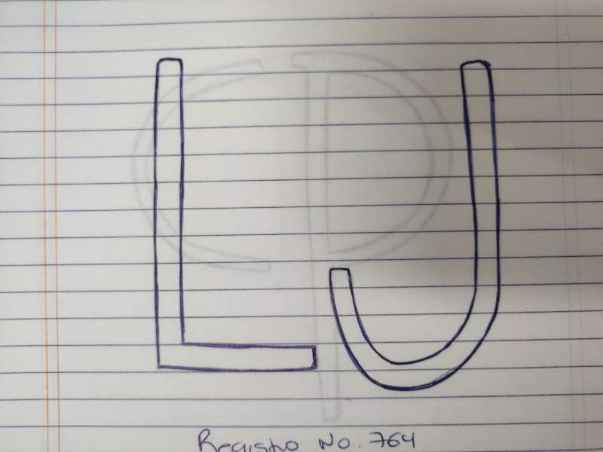 LJ
Registro No. 764